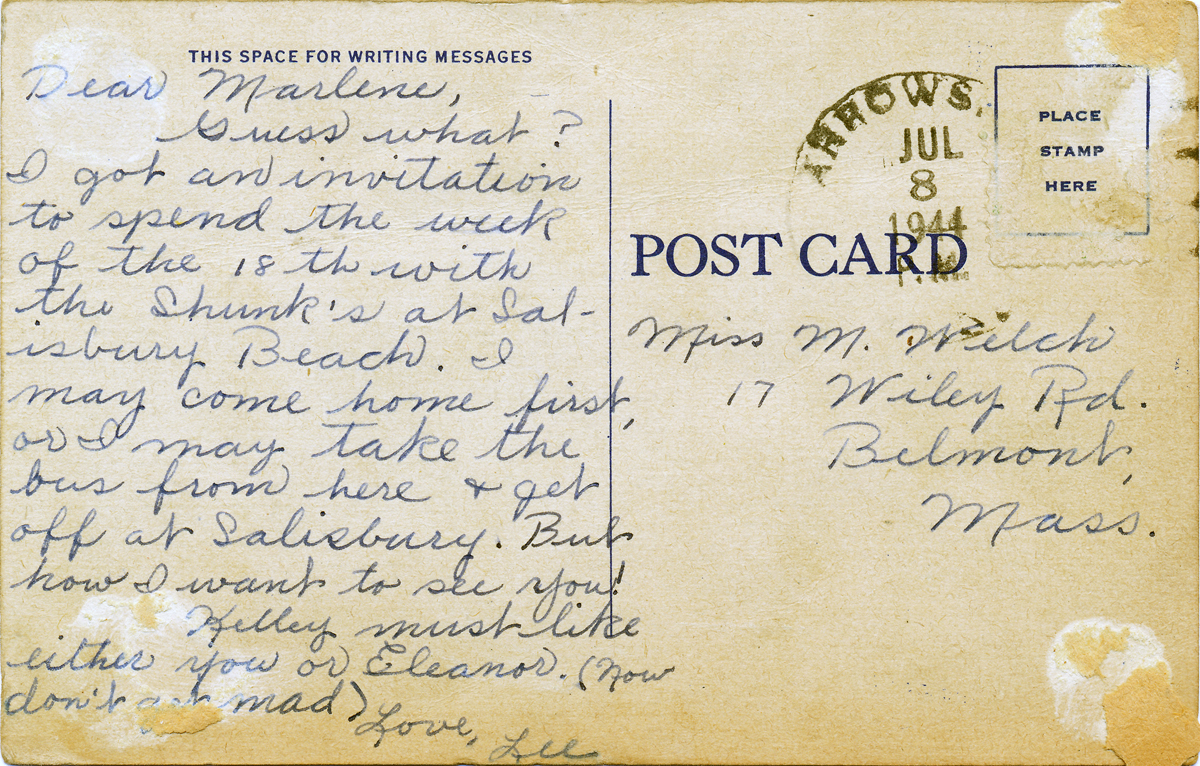 THIS SPACE FOR WRITING MESSAGES
Dear Marlene,
Guess what?
I got an invitation
to spend the week
of the 18th with
the Shunk's at Sal-
isbury Beach. I
may come home first,
or I may take the
bus from here & get
off at Salisbury. But
how I want to see you!
Kelley must like
either you or Eleanor. (Now
don't get mad)
Love, Lee
ARROWS
JUL
8
1944
PLACE
STAMP
HERE
POST CARD
Miss M. Welch
17 Wiley Rd.
Belmont,
Mass.